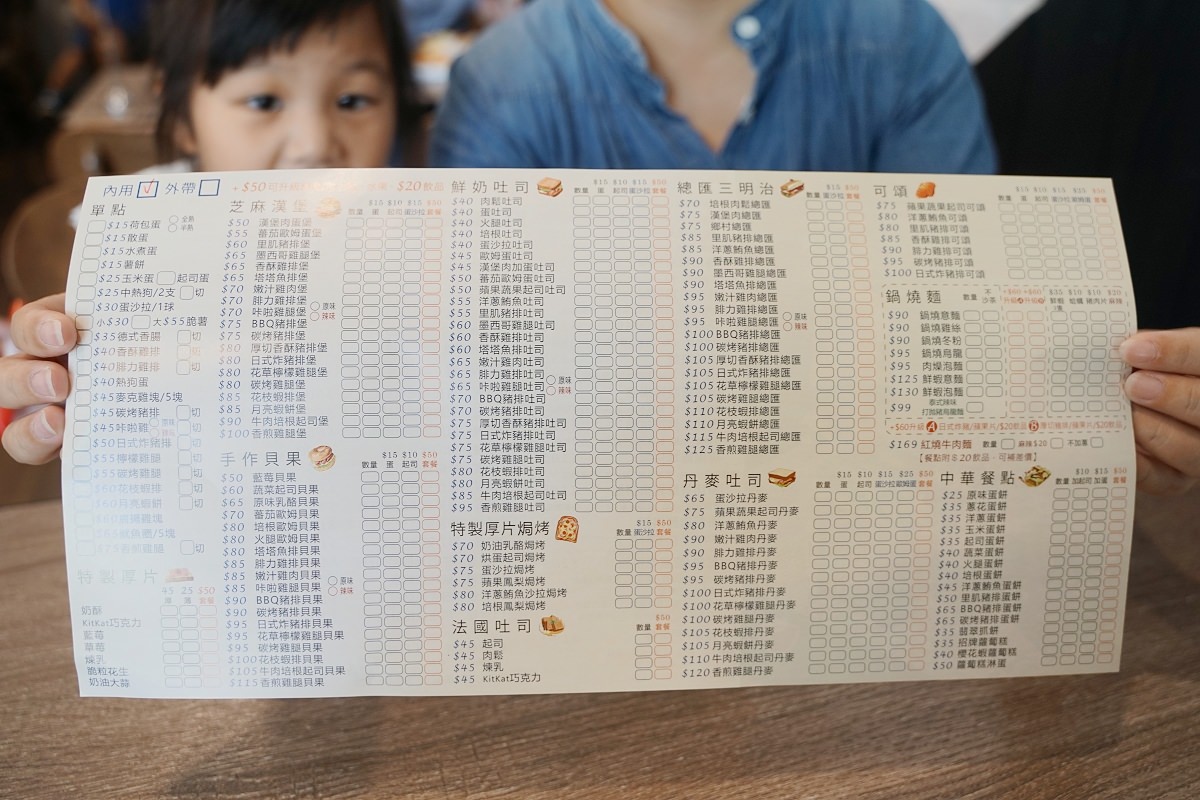 內用 外帶
+$50可升級 $20飲品
單點
$15荷包蛋 全熟 半熟
$15散蛋
$15水煮蛋
$15薯餅
$25玉米蛋 起司蛋
$25中熱狗/2支 切
$30蛋沙拉/1球
小$30 大$55脆薯
$35德式香腸 切
$40香香雞排 切
$40腓力雞排 切
$40熱狗蛋
$45麥克雞塊/5塊
$45碳烤豬排 切
$45咔啦雞 切
$50日式炸豬排 切
$55檸檬雞腿 切
$55碳烤雞腿 切
$60花枝蝦排 切
$60月亮蝦餅 切
$75香煎雞腿 切
特製厚片
45 25 $50
套餐
奶酥
KitKat巧克力
藍莓
草莓
煉乳
脆粒花生
奶油大蒜
芝麻漢堡
$15 $10 $15 $50
數量 蛋 起司 蛋沙拉 套餐
$50 漢堡肉蛋堡
$55 蕃茄歐姆蛋堡
$60 里肌豬排堡
$65 墨西哥雞腿堡
$65 香酥雞排堡
$65 塔塔魚排堡
$70 嫩汁雞肉堡
$70 腓力雞排堡
$70 咔啦雞腿堡 原味 辣味
$75 BBQ豬排堡
$75 碳烤豬排堡
$80 厚切香酥豬排堡
$80 日式炸豬排堡
$80 花草檸檬雞腿堡
$80 碳烤雞腿堡
$85 花枝蝦排堡
$85 月亮蝦餅堡
$90 牛肉培根起司堡
$100 香煎雞腿堡
手作貝果
$15 $10 $50
數量 蛋 起司 套餐
$50 藍莓貝果
$60 蔬菜起司貝果
$65 原味乳酪貝果
$70 蕃茄歐姆貝果
$80 培根歐姆貝果
$80 火腿歐姆貝果
$80 塔塔魚排貝果
$85 腓力雞排貝果
$85 嫩汁雞肉貝果
$85 咔啦雞腿貝果 原味 辣味
$90 BBQ豬排貝果
$90 碳烤豬排貝果
$95 日式炸豬排貝果
$95 花草檸檬雞腿貝果
$95 碳烤雞腿貝果
$100花枝蝦排貝果
$100月亮蝦餅貝果
$105牛肉培根起司貝果
$115香煎雞腿貝果
鮮奶吐司
$15 $10 $15 $50
數量 蛋 起司 蛋沙拉 套餐
$40 肉鬆吐司
$40 蛋吐司
$40 火腿吐司
$40 培根吐司
$40 蛋沙拉吐司
$45 歐姆蛋吐司
$45 漢堡肉加蛋吐司
$50 蘋果蔬果起司吐司
$55 洋蔥鮪魚吐司
$55 里肌豬排吐司
$60 墨西哥雞腿吐司
$60 香酥雞排吐司
$60 塔塔魚排吐司
$65 嫩汁雞肉吐司
$65 腓力雞排吐司
$65 咔啦雞腿吐司 原味 辣味
$70 BBQ豬排吐司
$70 碳烤豬排吐司
$75 厚切香酥豬排吐司
$75 日式炸豬排吐司
$75 花草檸檬雞腿吐司
$75 碳烤雞腿吐司
$80 花枝蝦排吐司
$80 月亮蝦餅吐司
$85 牛肉培根起司吐司
$95 香煎雞腿吐司
特製厚片焗烤
$15 $50
數量 蛋沙拉 套餐
$70 奶油乳酪焗烤
$70 烘蛋起司焗烤
$75 蛋沙拉焗烤
$75 蘋果鳳梨焗烤
$80 洋蔥鮪魚沙拉焗烤
$80 培根鳳梨焗烤
法國吐司
$50
數量 套餐
$45 起司
$45 肉鬆
$45 煉乳
$45 KitKat巧克力
總匯三明治
$15 $50
數量 蛋沙拉 套餐
$70 培根肉鬆總匯
$75 漢堡肉總匯
$75 鄉村總匯
$85 里肌豬排總匯
$85 洋蔥鮪魚總匯
$90 香酥雞排總匯
$90 墨西哥雞腿總匯
$90 塔塔魚總匯
$95 嫩汁雞肉總匯
$95 腓力雞排總匯
$95 咔啦雞腿總匯 原味 辣味
$100 BBQ豬排總匯
$100 碳烤豬排總匯
$105 厚切香酥豬排總匯
$105 日式炸豬排總匯
$105 花草檸檬雞腿總匯
$105 碳烤雞腿總匯
$110 花枝蝦排總匯
$110 月亮蝦餅總匯
$115 牛肉培根起司總匯
$125 香煎雞腿總匯
丹麥吐司
$15 $10 $15 $25 $50
數量 蛋 起司 蛋沙拉 歐姆蛋 套餐
$65 蛋沙拉丹麥
$75 蘋果蔬果起司丹麥
$80 洋蔥鮪魚丹麥
$90 嫩汁雞肉丹麥
$90 腓力雞丹麥
$95 BBQ豬排丹麥
$95 碳烤豬排丹麥
$100日式炸豬排丹麥
$100花草檸檬雞腿丹麥
$100碳烤雞腿丹麥
$105花枝蝦排丹麥
$105月亮蝦餅丹麥
$110牛肉培根起司丹麥
$120香煎雞腿丹麥
可頌
$15 $10 $15 $50
數量 蛋 起司 蛋沙拉 套餐
$75 蘋果蔬果起司可頌
$80 洋蔥鮪魚可頌
$80 里肌豬排可頌
$85 香酥雞排可頌
$90 腓力雞可頌
$95 碳烤豬排可頌
$100日式炸豬排可頌
鍋燒麵
數量 不沙茶 +$60升級A +$60升級B $35 $10 $10 $20
鮮蝦 蛤蠣 豬肉片 麻辣
$90 鍋燒意麵
$90 鍋燒雞絲
$90 鍋燒冬粉
$95 鍋燒烏龍
$95 肉燥泡麵
$125 鮮蝦意麵
$130 鮮蝦泡麵
$99 泰式辣味打拋豬烏龍麵
+$60升級 A日式炸雞/蘋果片/$20飲品 B蘋果片/$20飲品
$169 紅燒牛肉麵 數量 麻辣$20 不加蔥
【餐點附$20飲品,可補差價】
中華餐點
$10 $15 $50
數量 加起司 加蛋 套餐
$25 原味蛋餅
$35 蔥花蛋餅
$35 洋蔥蛋餅
$35 玉米蛋餅
$35 起司蛋餅
$40 蔬菜蛋餅
$40 火腿蛋餅
$40 培根蛋餅
$45 嫩蔥蛋餅
$50 里肌豬排蛋餅
$65 BBQ豬排蛋餅
$65 碳烤豬排蛋餅
$35 翡翠抓餅
$35 招牌蘿蔔糕
$40 櫻花蝦蘿蔔糕
$50 蘿蔔糕淋蛋